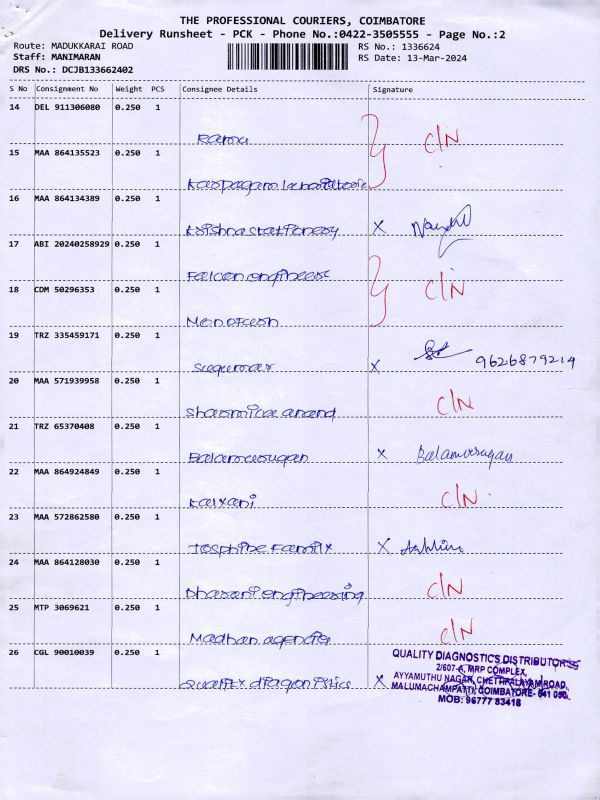 THE PROFESSIONAL COURIERS, COIMBATORE
Delivery Runsheet - PCK - Phone No.:0422-3505555 - Page No.:2
Route: MADUKKARAI ROAD RS No.: 1336624
Staff: MANIMARAN RS Date: 13-Mar-2024
DRS No.: DCJB133662402
S No Consignment No Weight PCS Consignee Details Signature
14 DEL 911306080 0.250 1
Rama C/N
15 MAA 864135523 0.250 1
Karpagam
16 MAA 864134389 0.250 1
Krishna stationery X
17 ABI 20240258929 0.250 1
Falcon engineers
18 CDM 50296353 0.250 1 C/N
19 TRZ 335459171 0.250 1
Sugumar X 9626879214
20 MAA 571939958 0.250 1
Sharmica anand C/N
21 TRZ 65370408 0.250 1
Balamurugan X Balamurugan
22 MAA 864924849 0.250 1
Kalyani C/N
23 MAA 572862580 0.250 1
Josphine Family X
24 MAA 864128030 0.250 1
Dharani engineering C/N
25 MTP 3069621 0.250 1
Madhan C/N
26 CGL 90010039 0.250 1
X
QUALITY DIAGNOSTICS DISTRIBUTORS
2/607-A, MRP COMPLEX,
AYYAMUTHU NAGAR, CHETTIPALAYAM ROAD,
MALUMACHAMPATTI, COIMBATORE- 641 050.
MOB: 96777 83418